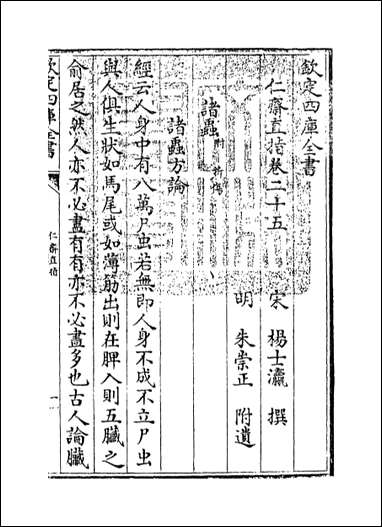 欽定四庫全書
仁齋直指卷二十五
宋 楊士瀛 撰
明 朱崇正 附遺
諸蟲 附
諸蟲方論
經云人身中有八萬尸虫若無即人身不成不立尸虫
與人俱生狀如馬尾或如薄筋出則在脾入則五臟之
俞居之然人亦不必盡有有亦不必盡多也古人論臟
欽定四庫全書
仁齋直指
一